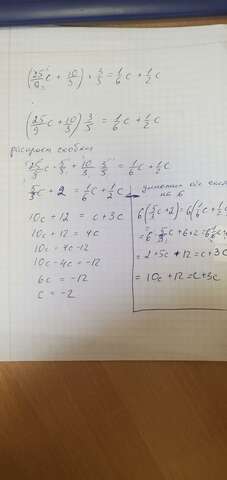 (25/9 c + 10/3) · 3/5 = 1/6 c + 1/2 c
(25/9 c + 10/3) 3/5 = 1/6 c + 1/2 c
раскроем скобки
25/9 c · 3/5 + 10/3 · 3/5 = 1/6 c + 1/2 c
5/3 c + 2 = 1/6 c + 1/2 c
10c + 12 = c + 3c
10c + 12 = 4c
10c = 4c - 12
10c - 4c = -12
6c = -12
c = -2
на 6
6(5/3 c + 2) = 6(1/6 c + 1/2 c
= 6 · 5/3 c + 6 · 2 = 6 1/6 c +
= 2 · 5c + 12 = c + 3c
= 10c + 12 = c + 3c